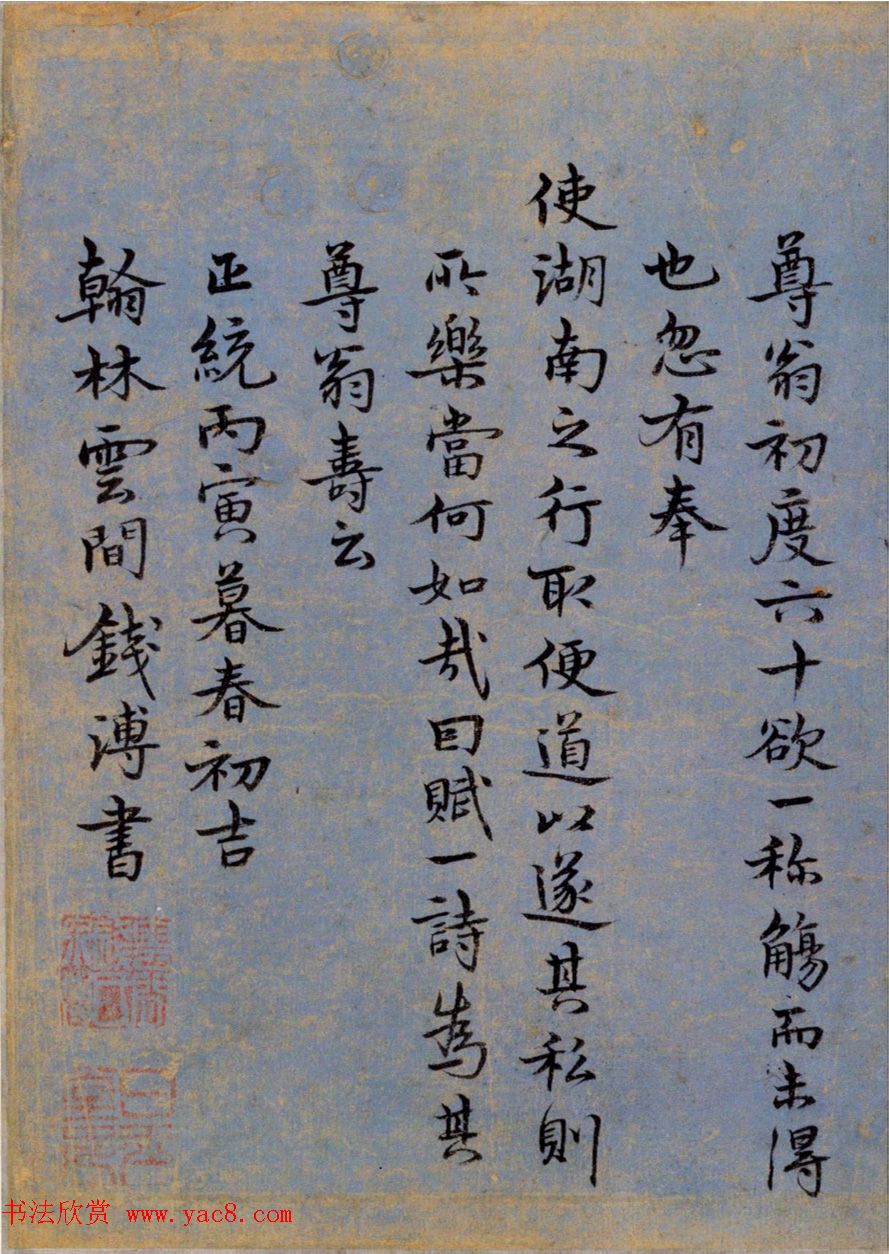 尊翁初度六十欲一称觴而未得
也忽有奉
使湖南之行取便道以遂其私則
所樂當何如哉因賦一詩為其
尊翁壽云
正統丙寅暮春初吉
翰林雲間錢溥書
书法欣赏 www.yac8.com